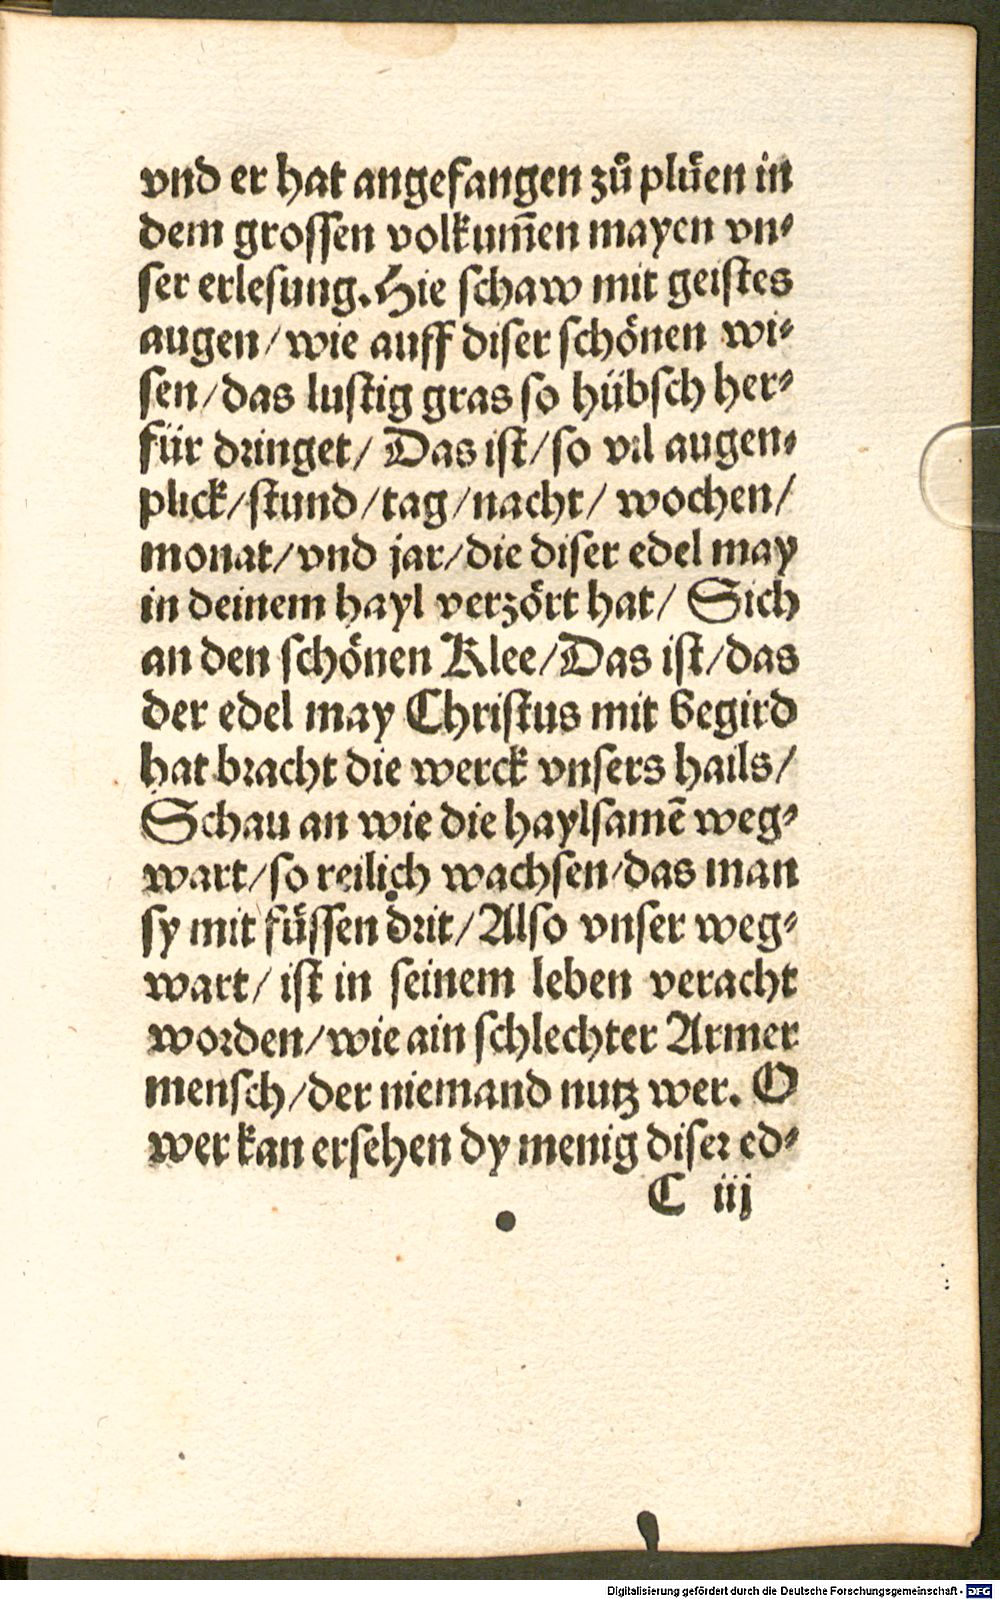 vnd er hat angefangen zů plůen in
dem grossen volkum̃en mayen vn⸗
ser erlesung. Hie schaw mit geistes
augen/ wie auff diser schönen wi⸗
sen/ das lustig gras so hübsch her⸗
für dringet/ Das ist/ so vil augen⸗
plick/ stund/ tag/ nacht/ wochen/
monat/ vnd jar/ die diser edel may
in deinem hayl verzört hat/ Sich
an den schönen Klee/ Das ist/ das
der edel may Christus mit begird
hat bracht die werck vnsers hails/
Schau an wie die haylsamẽ weg⸗
wart/ so reilich wachsen/ das man
sy mit füssen drit/ Also vnser weg⸗
wart/ ist in seinem leben veracht
worden/ wie ain schlechter Armer
mensch/ der niemand nutz wer. O
wer kan ersehen dy menig diser ed⸗
C iij
Digitalisierung gefördert durch die Deutsche Forschungsgemeinschaft - DFG